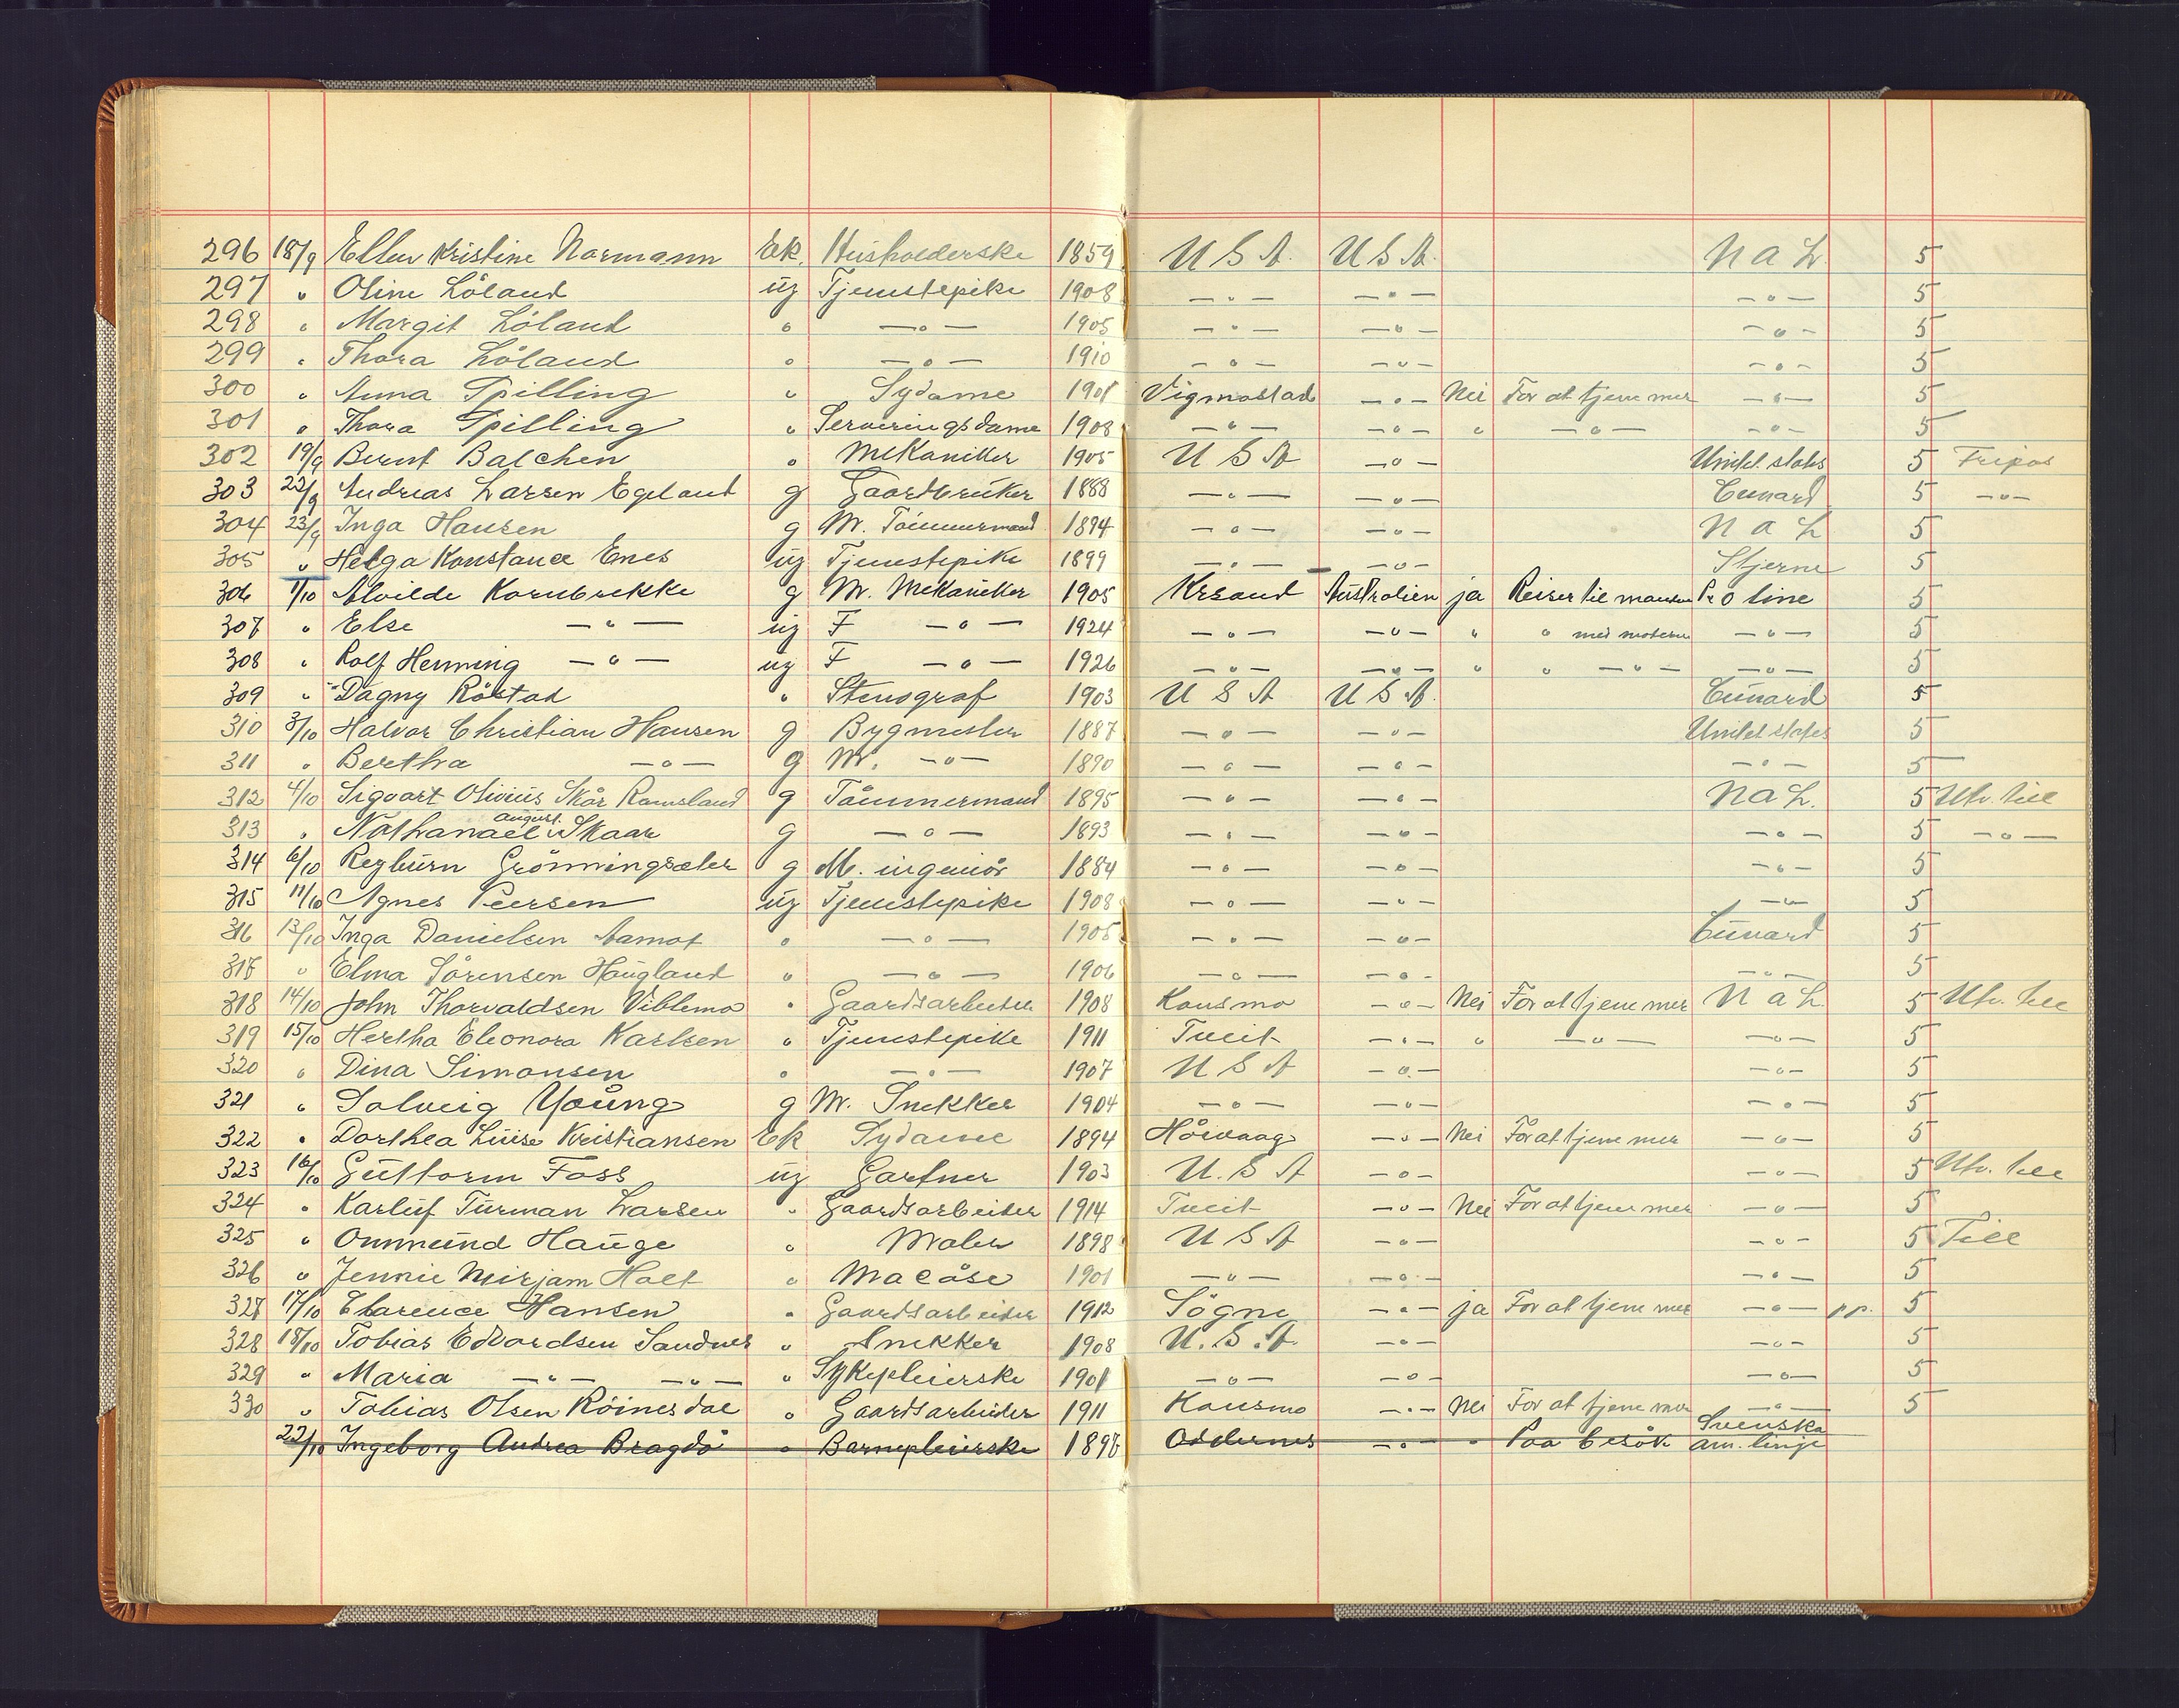 296 18/9 Ellen Kristine Normann Ek. Husholderske 1859 U S A. U S A. N a L. 5
297 " Oline Löland ug Tjenestepike 1908 — " — — " — — " — 5
298 " Margit Löland " — " — 1905 — " — — " — — " — 5
299 " Thora Löland " — " — 1910 — " — — " — — " — 5
300 " Anna Spilling " Sydame 1901 Vigmostad — " — Nei For at tjene mer — " — 5
301 " Thora Spilling " Serveringsdame 1908 — " — — " — " — " — — " — 5
302 19/9 Bernt Balchen " Mekaniker 1905 U S A — " — Unitet states 5 Fripas
303 22/9 Andreas Larsen Egeland g Gaardbruker 1888 — " — — " — Cunard 5 — " —
304 23/9 Inga Hansen g M. Tömmermand 1894 — " — — " — N a L 5
305 " Helga Konstance Enes ug Tjenestepike 1899 — " — — " — Stjerne 5
306 1/10 Alvilde Kornbrekke g M. Mekaniker 1905 Krsand Australien ja Reiser til manden P. o line 5
307 " Else — " — ug F — " — 1924 — " — — " — " " med moderen — " — 5
308 " Rolf Henning — " — ug F — " — 1926 — " — — " — " " — " — — " — 5
309 " Dagny Röstad " Stenograf 1903 U S A U S A. Cunard 5
310 3/10 Halvor Christian Hansen g Bygmester 1887 — " — — " — Unitet states 5
311 " Bertha — " — g M. — " — 1890 — " — — " — — " — 5
312 4/10 Sigvart Olivius Skår Ramsland g Tömmermand 1895 — " — — " — N a L. 5 Utv. till
313 " Nathanael August Skaar g — " — 1893 — " — — " — — " — 5 — " —
314 6/10 Reyburn Grönningsæter g M. ingeniör 1884 — " — — " — — " — 5
315 11/10 Agnes Peersen ug Tjenestepike 1908 — " — — " — — " — 5
316 13/10 Inga Danielsen Aamot " — " — 1905 — " — — " — Cunard 5
317 " Elma Sörensen Haugland " — " — 1906 — " — — " — — " — 5
318 14/10 John Thorvaldsen Viblemo " Gaardsarbeider 1908 Konsmo — " — Nei For at tjene mer N a L 5 Utv. till
319 15/10 Hertha Eleonora Karlsen " Tjenestepike 1911 Tveit — " — " — " — — " — 5
320 " Dina Simonsen " — " — 1907 U S A — " — — " — 5
321 " Solveig Young g M. Snekker 1904 — " — — " — — " — 5
322 " Dorthea Luise Kristiansen Ek Sydame 1894 Hövaag — " — Nei For at tjene mer — " — 5
323 16/10 Guttorm Foss ug Gartner 1903 U. S A — " — — " — 5 Utv. till
324 " Karluf Turman Larsen " Gaardsarbeider 1914 Tveit — " — Nei For at tjene mer — " — 5
325 " Ommund Hauge " Maler 1898 U S A — " — — " — 5 Till
326 " Jennie Mirjam Holt " Masöse 1901 — " — — " — — " — 5
327 17/10 Clarence Hansen " Gaardsarbeider 1912 Sögne — " — ja For at tjene mer — " — p p. 5
328 18/10 Tobias Edvardsen Sandnes " Snekker 1908 U. S. A. — " — — " — 5
329 " Maria — " — — " — " Sykepleierske 1901 — " — — " — — " — 5
330 " Tobias Olsen Röinesdal " Gaardsarbeider 1911 Konsmo — " — Nei For at tjene mer — " — 5
22/10 Ingeborg Andrea Bragdö " Barnepleierske 1898 Oddernes — " — " Paa besök Svenska am. linje